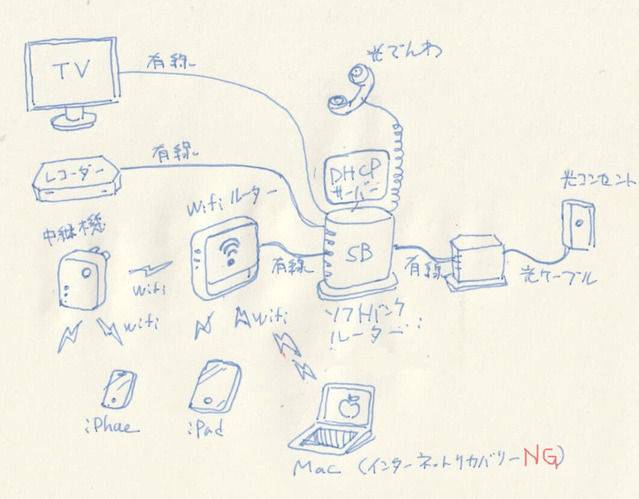 光でんわ
TV
有線
有線
レコーダー
DHCP
サーバー
光コンセント
Wifiルーター
中継機
SB
有線
有線
光ケーブル
wifi
wifi
wifi
ソフトバンク
ルーター
iPhoe
iPad
Mac (インターネットリカバリーNG)